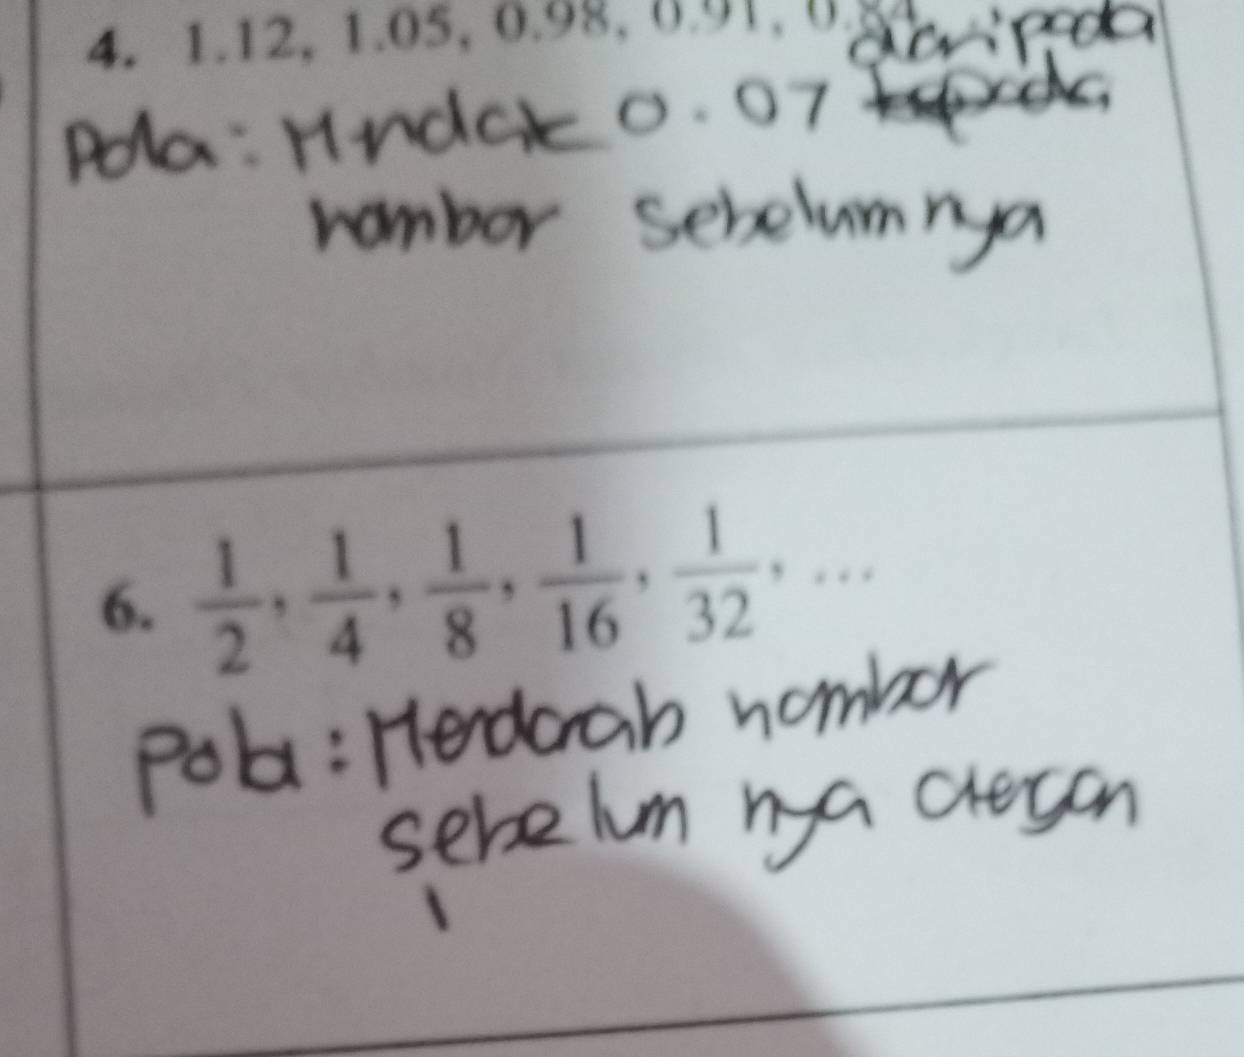 4. 1.12, 1.05, 0.98, 0.91, 0.84
daripada
Pola: Mndak 0.07
nombor sebelumnya
6. 1/2, 1/4, 1/8, 1/16, 1/32, ...
Pola: Mendarab nombor
sebelum nya degan
1